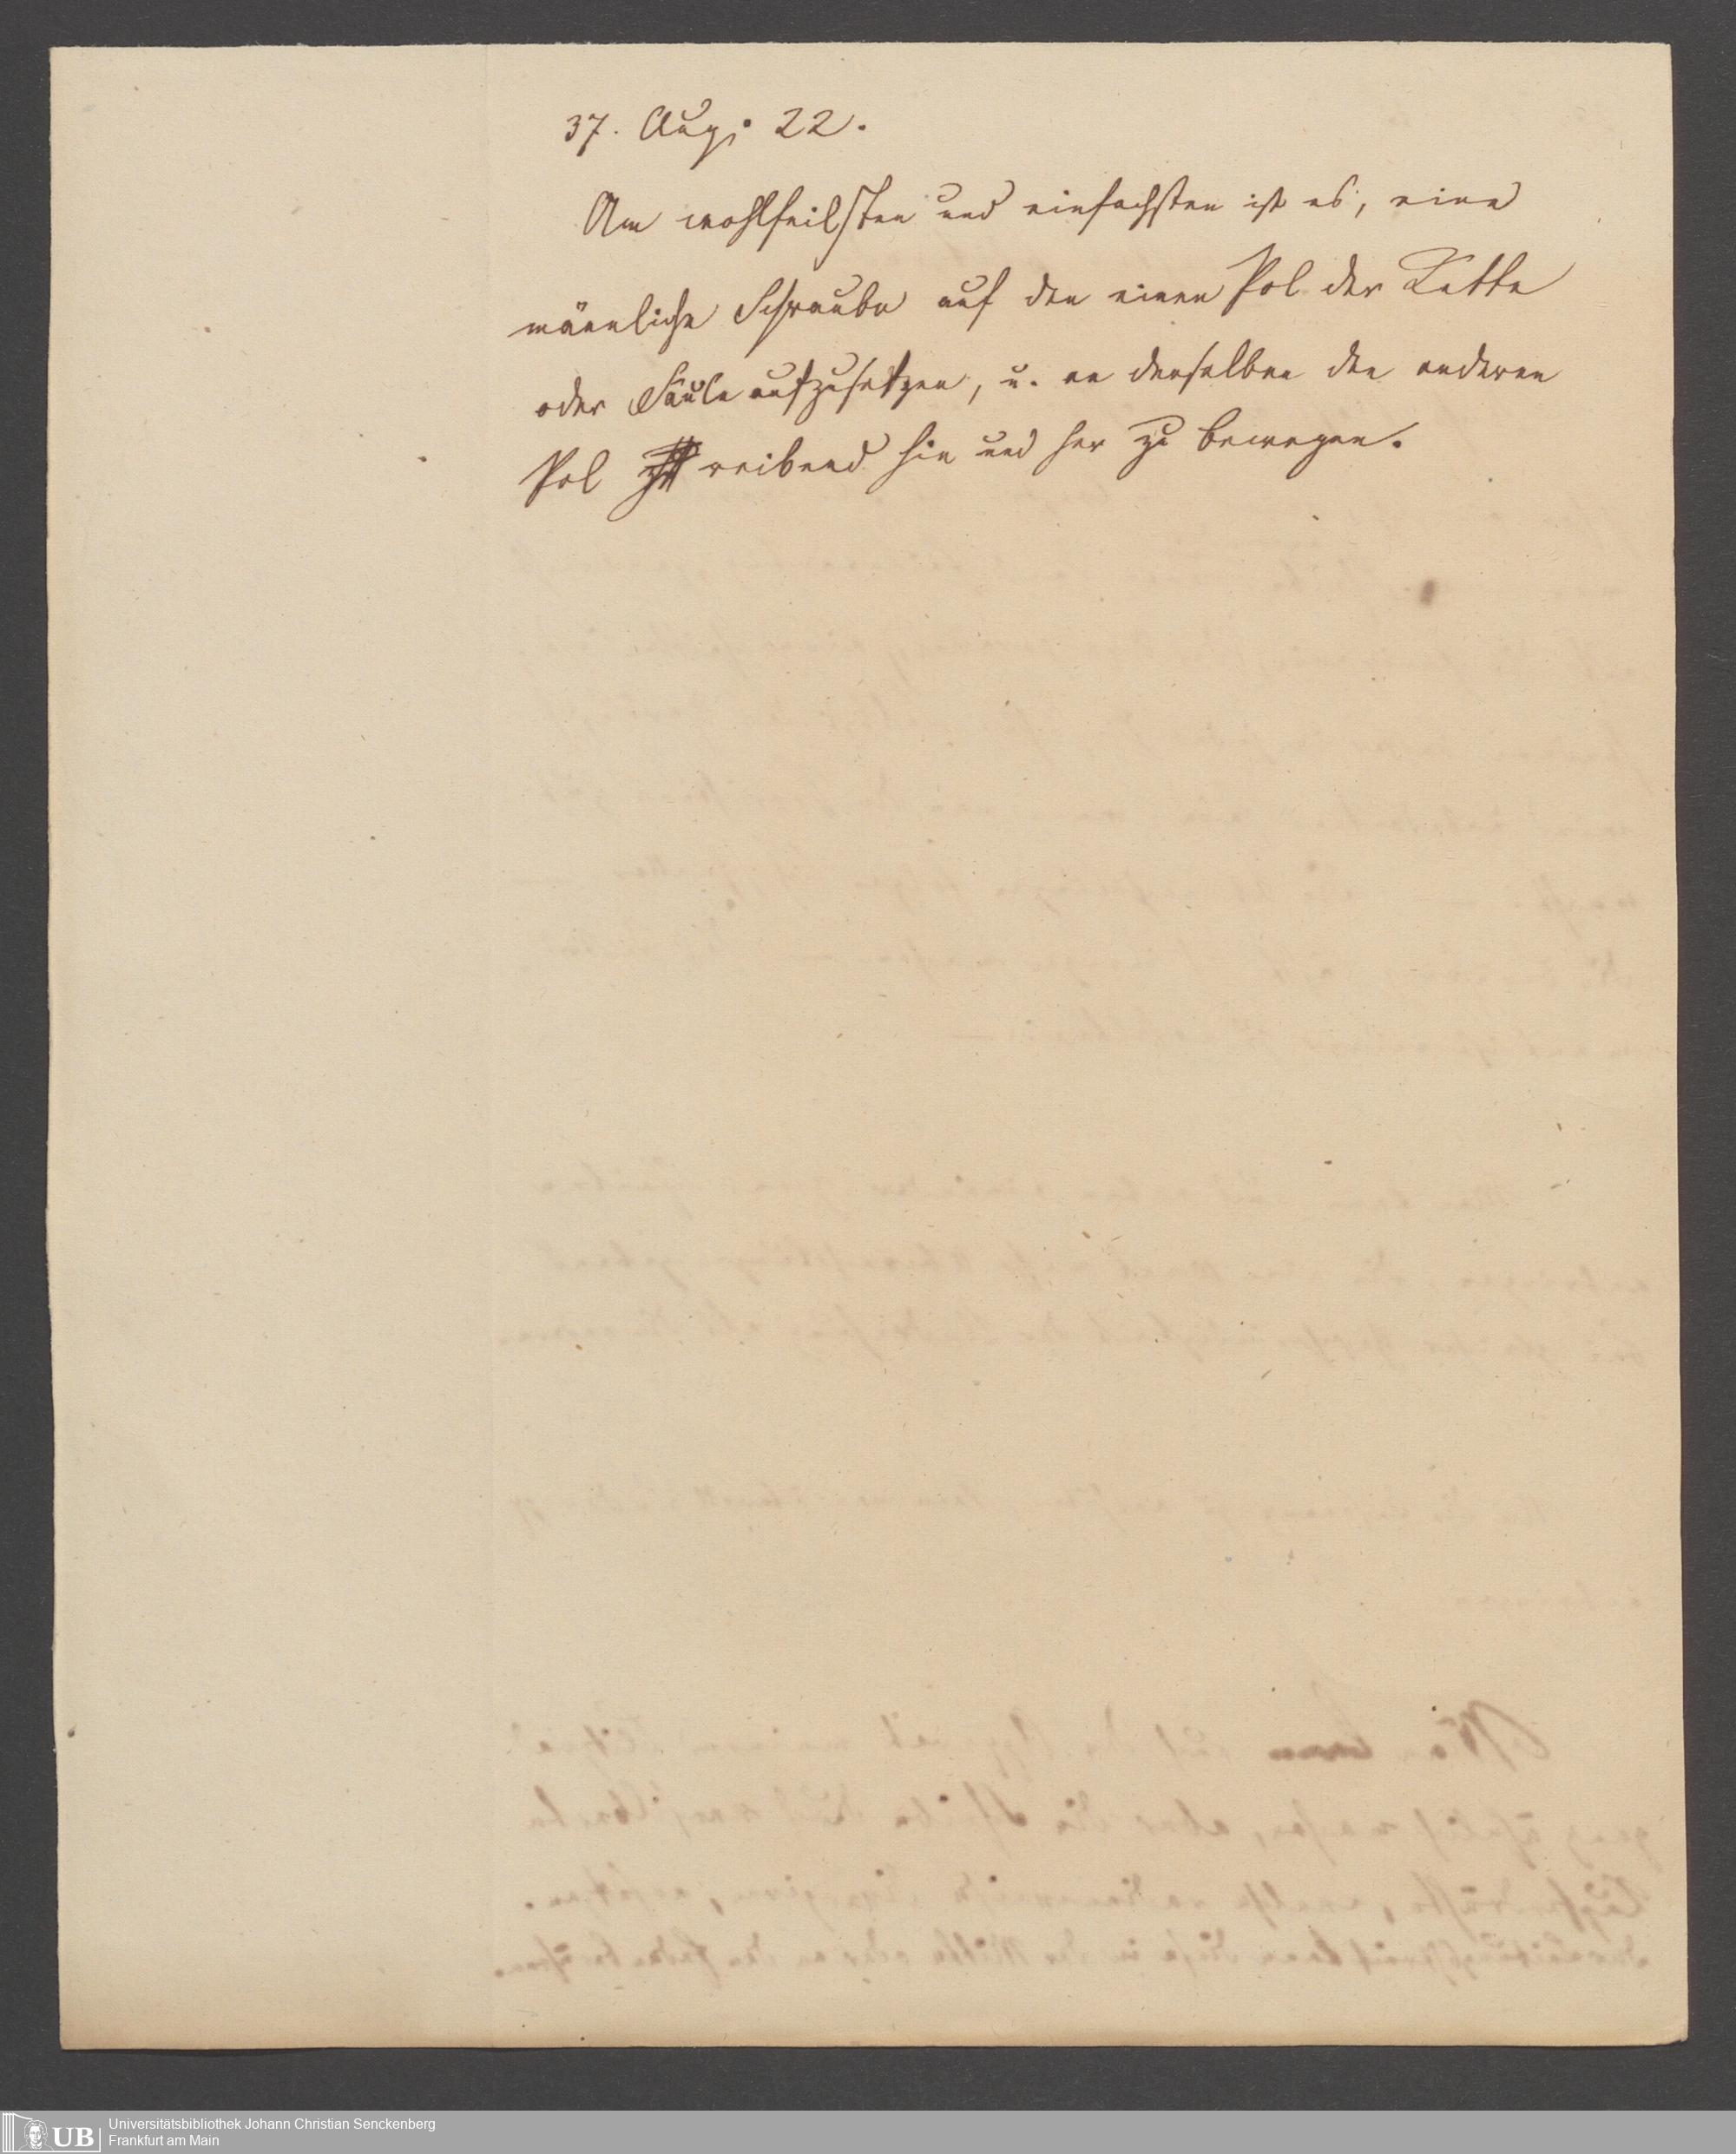 37. Aug. 22.
Am wohlfeilsten und einfachsten ist es, eine
männliche Schraube auf den einen Pol der Kette
oder Säule aufzusetzen, u. an derselben den anderen
Pol reibend hin und her zu bewegen.
UB
Universitätsbibliothek Johann Christian Senckenberg
Frankfurt am Main